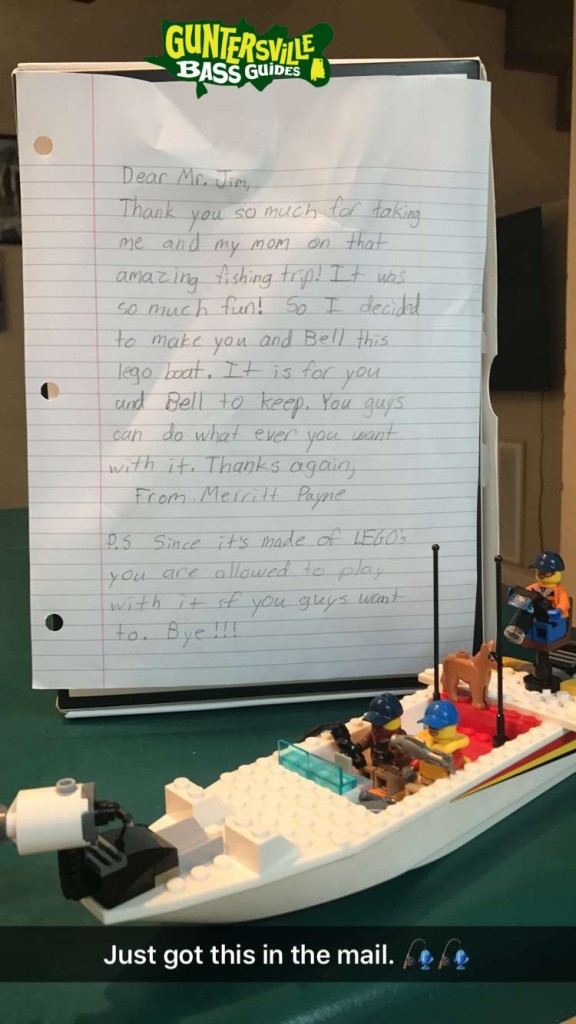 GUNTERSVILLE
BASS GUIDES
Dear Mr. Jim,
Thank you so much for taking
me and my mom on that
amazing fishing trip! It was
so much fun! So I decided
to make you and Bell this
lego boat. It is for you
and Bell to keep. You guys
can do what ever you want
with it. Thanks again,
From Merritt Payne
P.S Since it's made of LEGO's
you are allowed to play
with it if you guys want
to. Bye!!!
Just got this in the mail. 🎣🎣